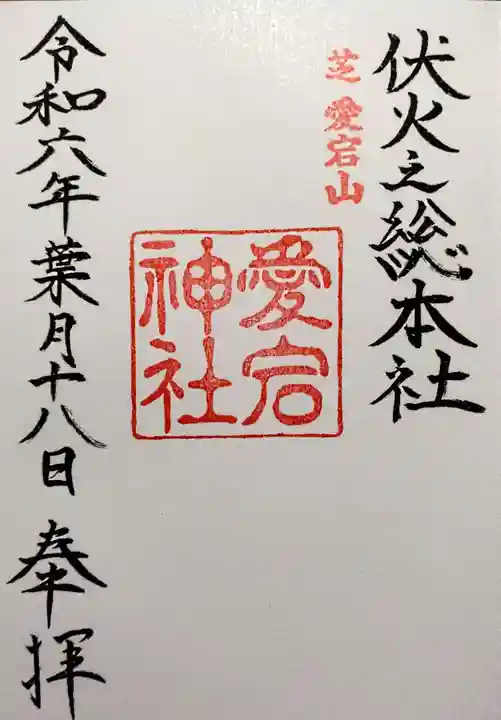 伏火之総本社
芝 愛宕山
愛宕
神社
令和六年葉月十八日 奉拝